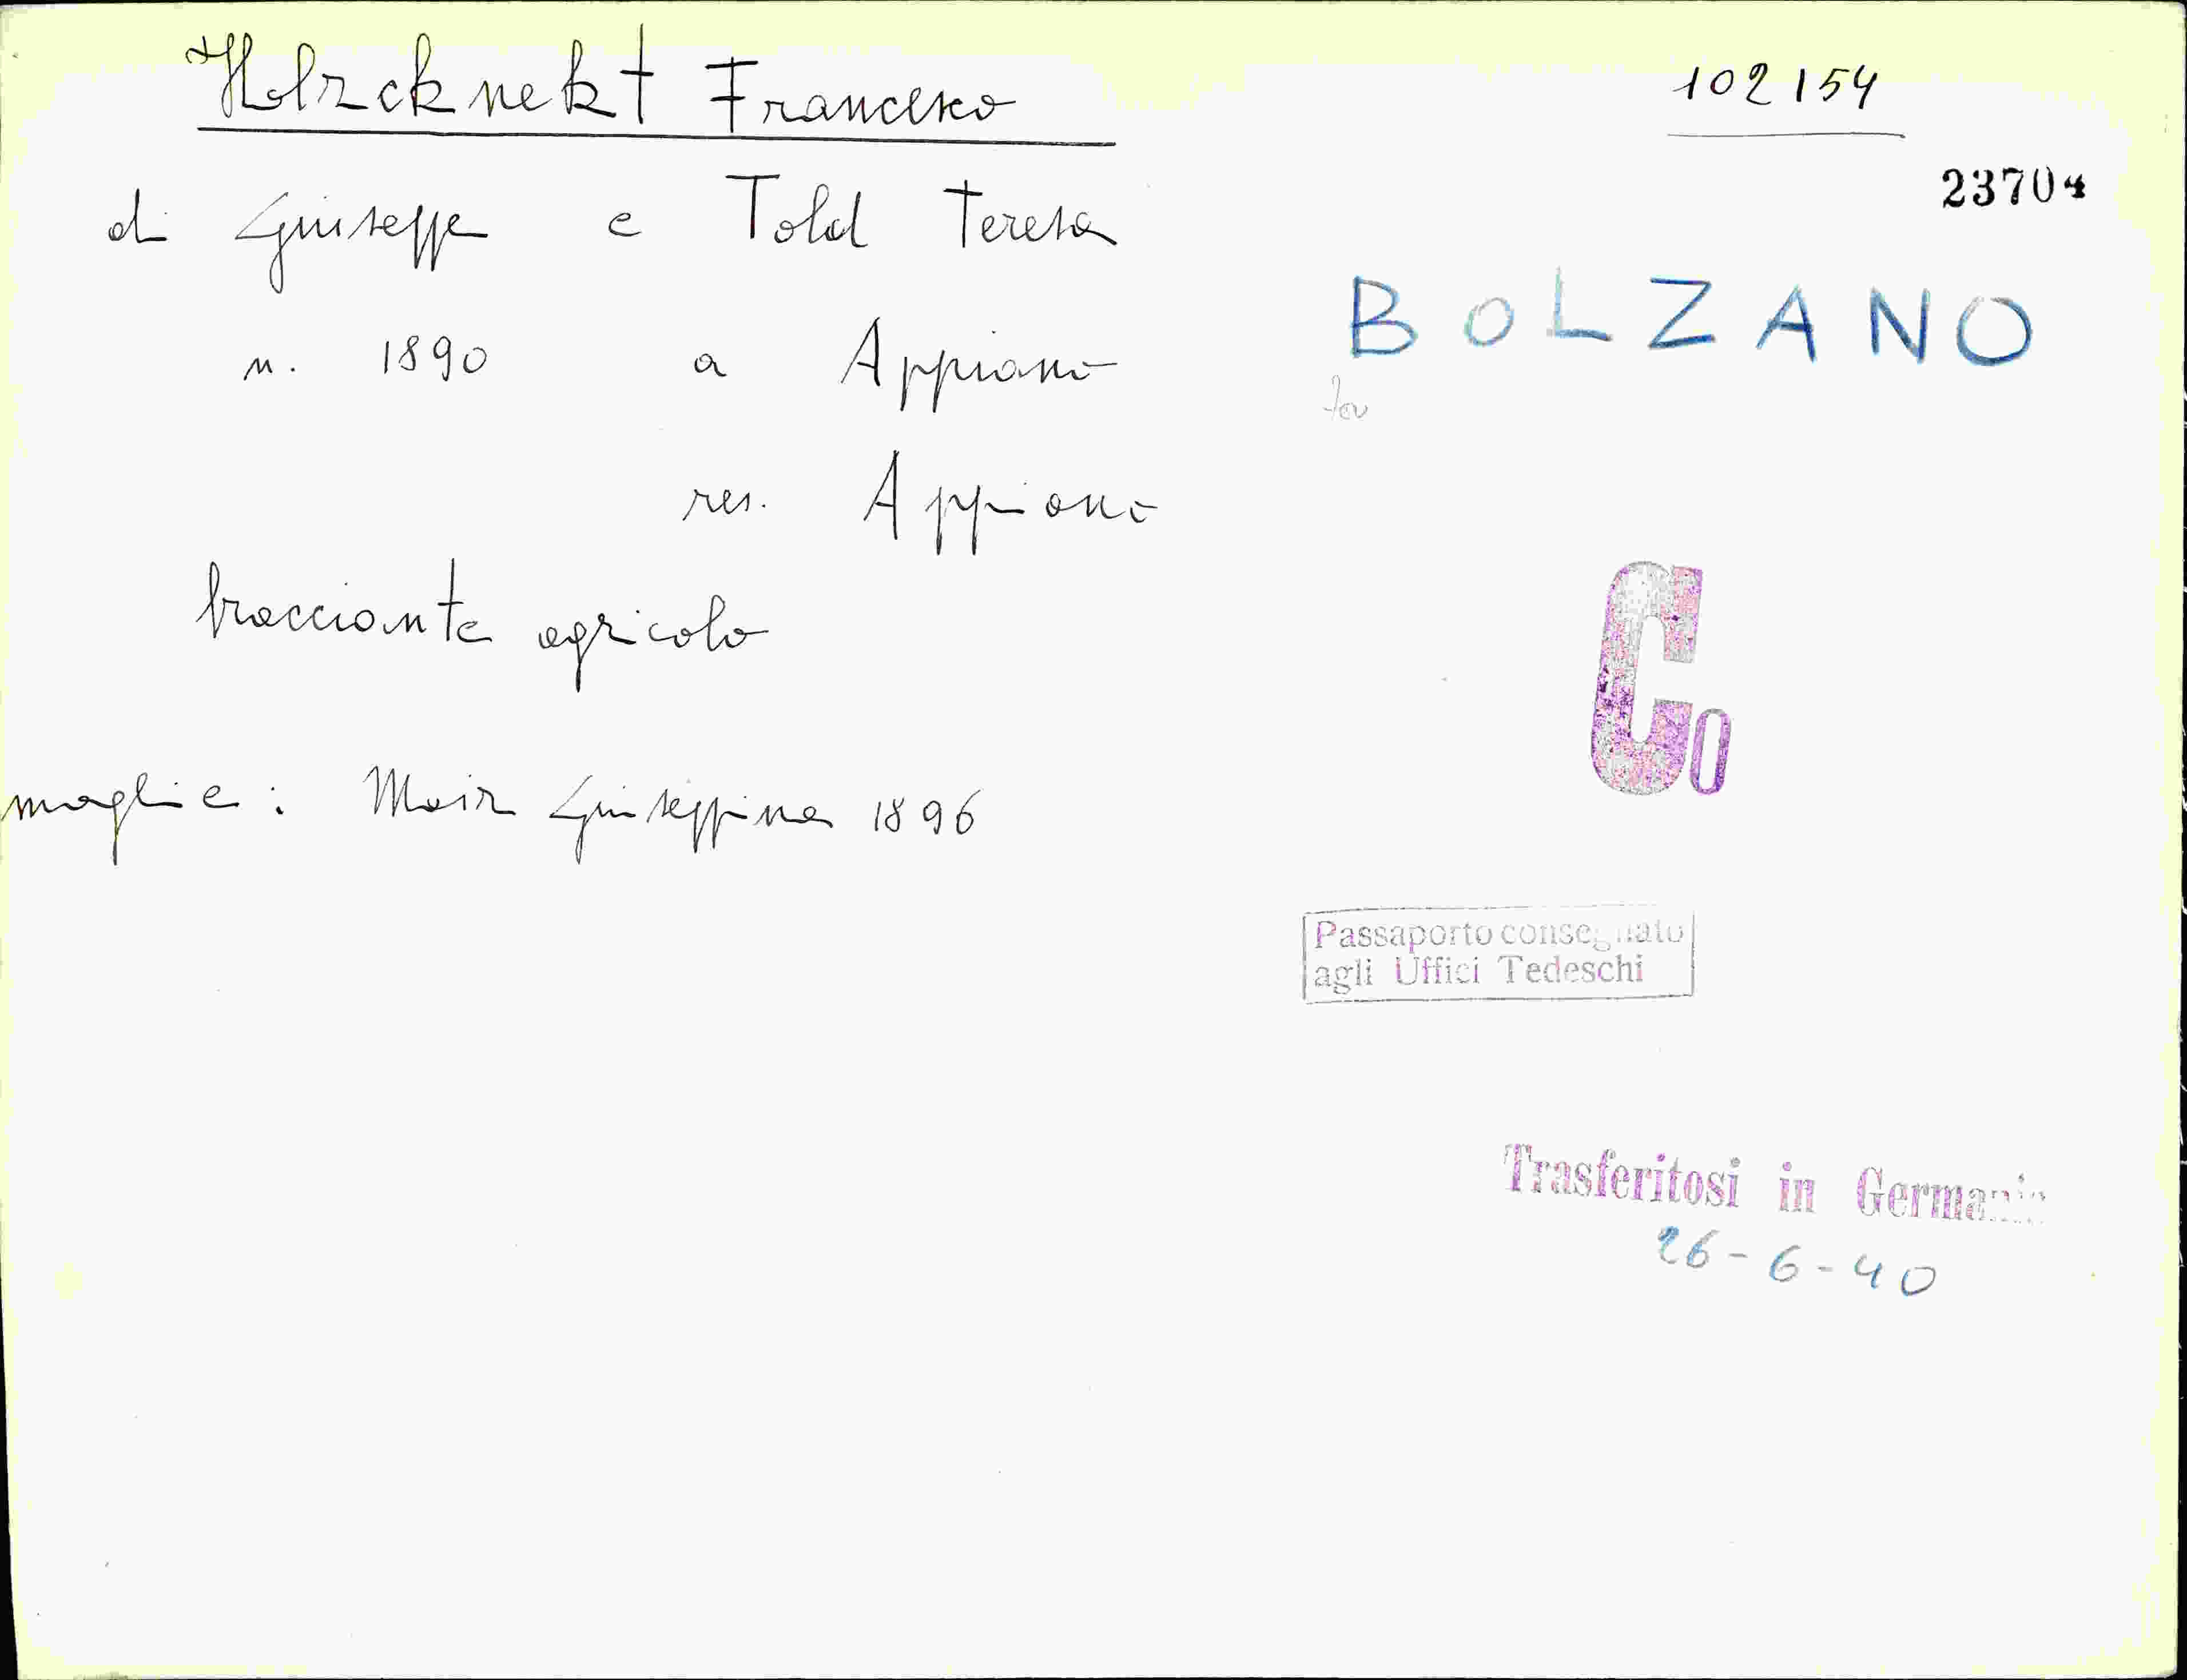 Holzcknekt Francesco
102154
23704
di Giuseppe e Told Teresa
BOLZANO
n. 1890 a Appiano
res. Appiano
bracciante agricolo
Co
moglie: Mair Giuseppina 1896
Passaporto consegnato
agli Uffici Tedeschi
Trasferitosi in Germania
26-6-40